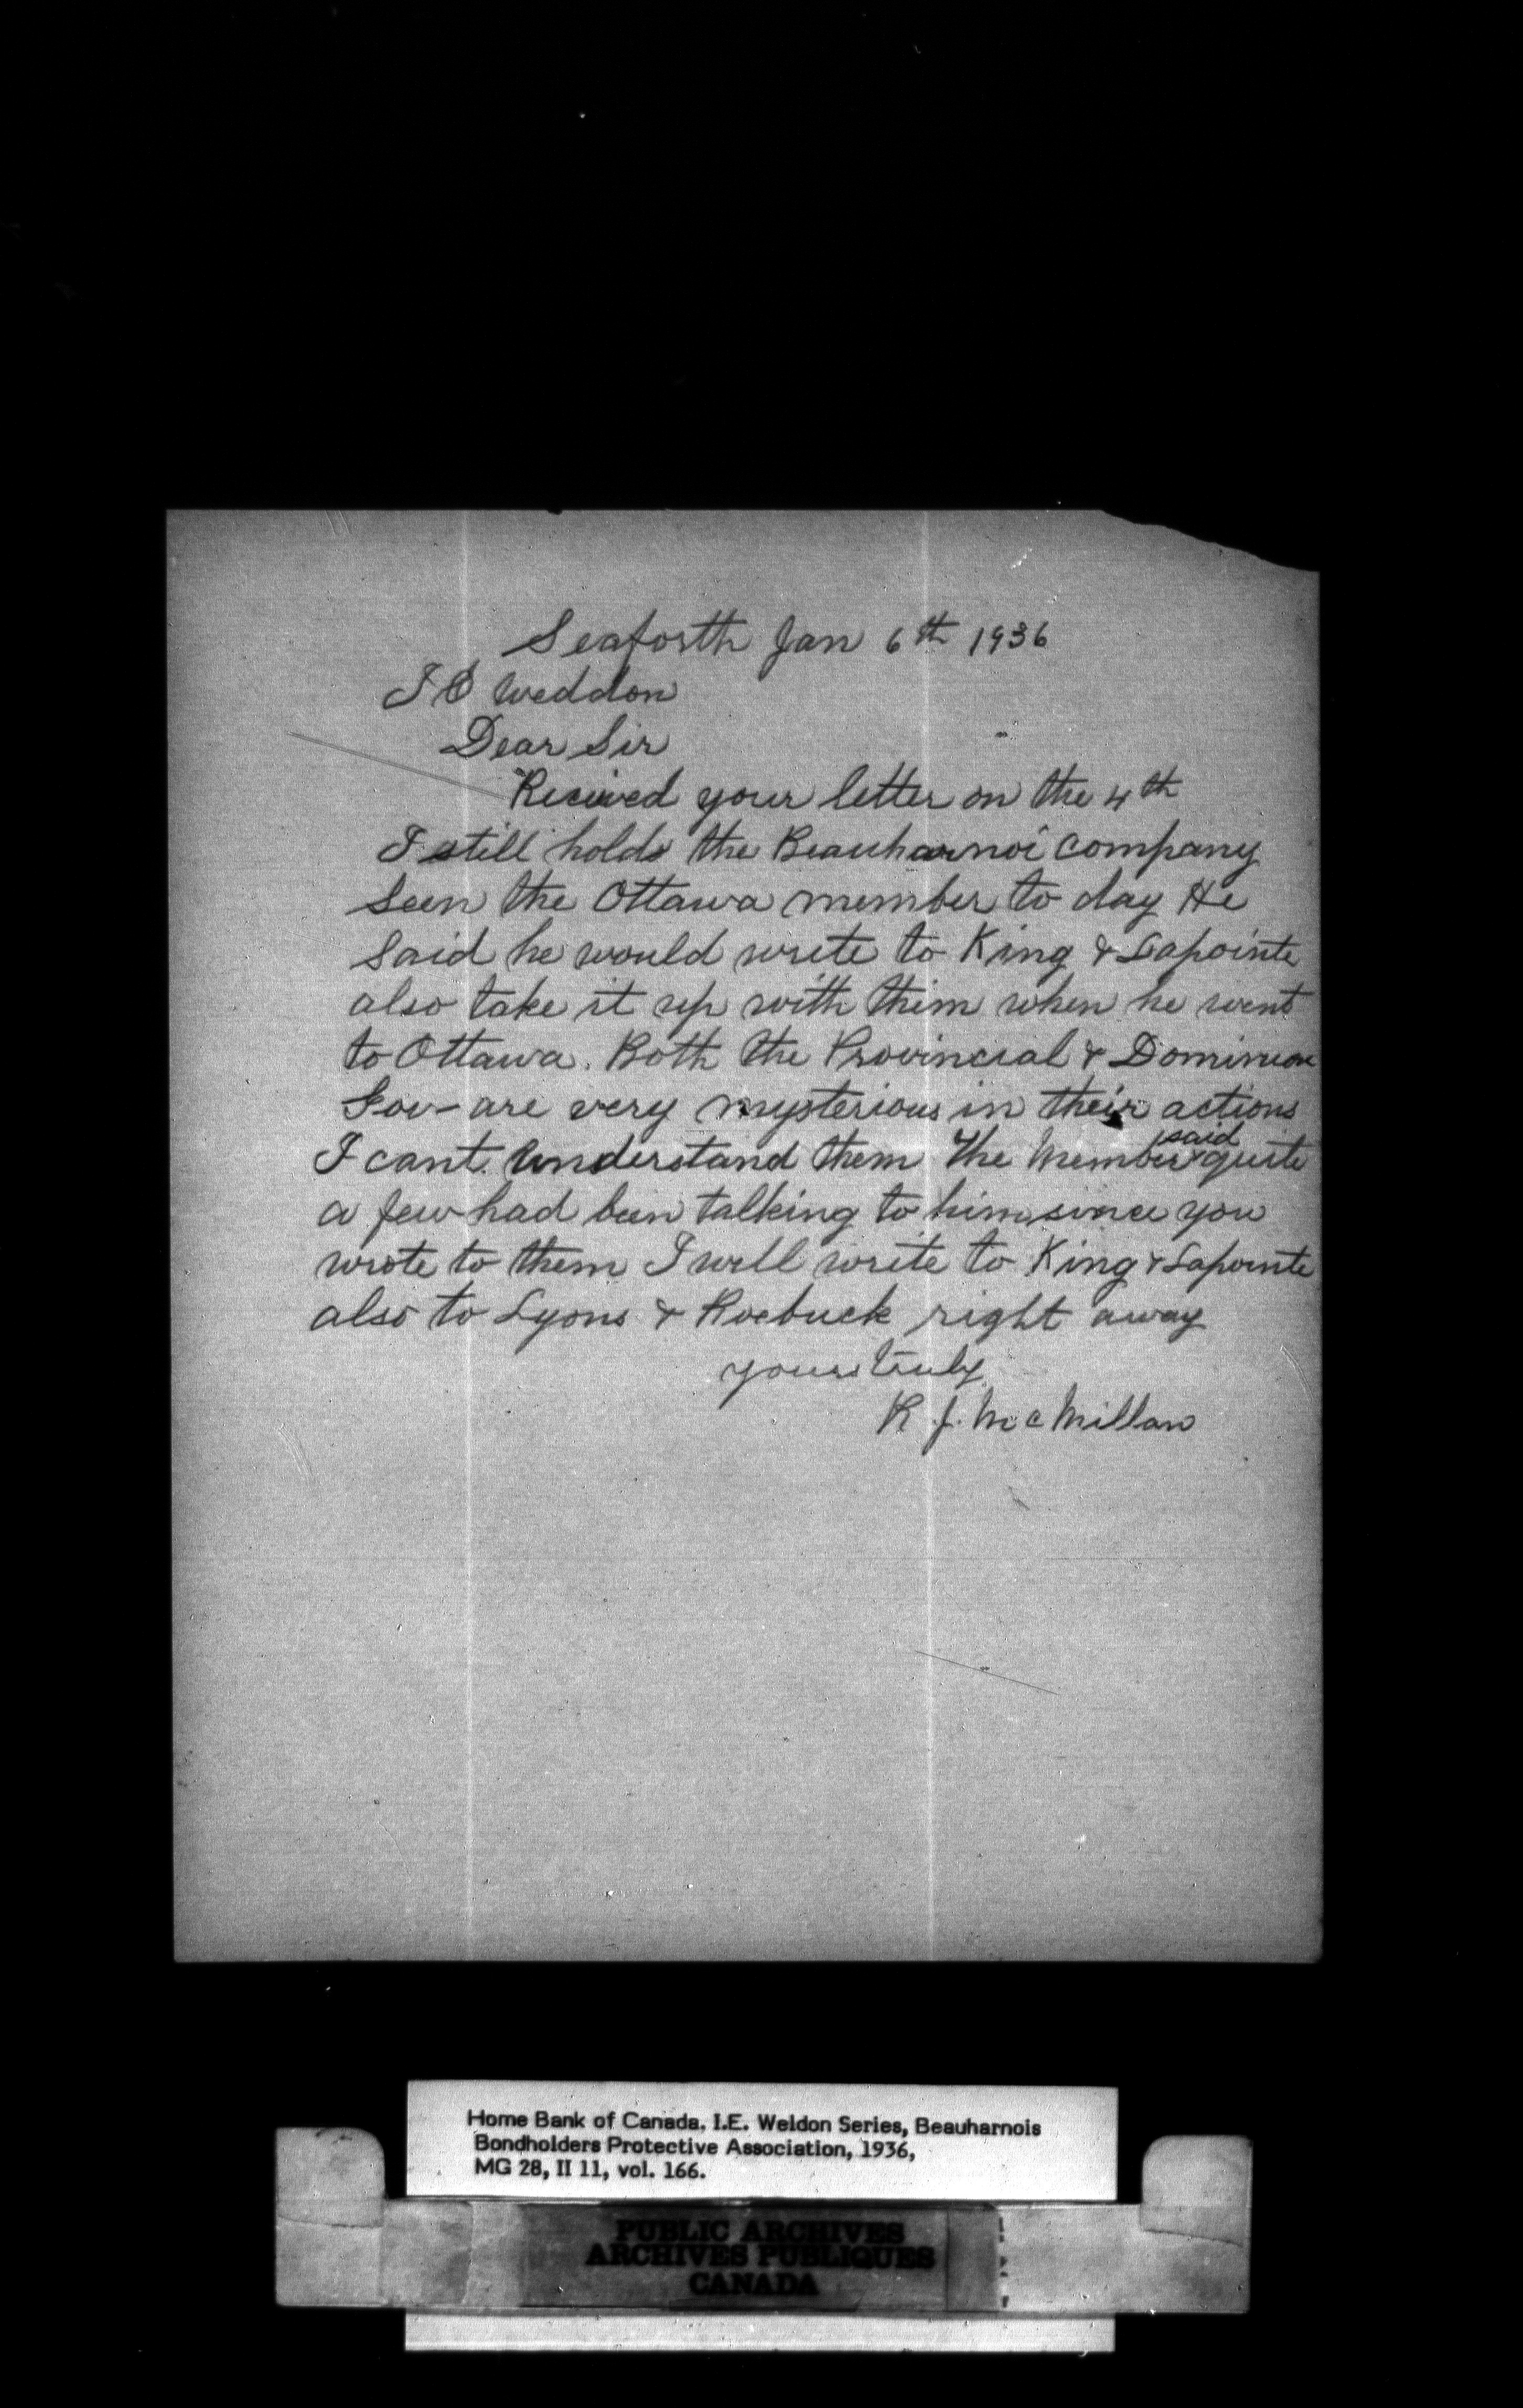 Seaforth Jan 6th 1936
I E Weddon
Dear Sir
Recieved your letter on the 4th
I still holds the Beauharnoi Company
Seen the Ottawa member to day He
said he would write to King & Lapointe
also take it up with them when he went
to Ottawa. Both the Provincial & Dominion
Gov- are very mysterious in their actions
I cant understand them The Member said quite
a few had been talking to him since you
wrote to them I will write to King & Lapointe
also to Lyons & Roebuck right away
yours truly
R. J. McMillan
Home Bank of Canada, I.E. Weldon Series, Beauharnois
Bondholders Protective Association, 1936,
MG 28, II 11, vol. 166.
PUBLIC ARCHIVES
ARCHIVES PUBLIQUES
CANADA